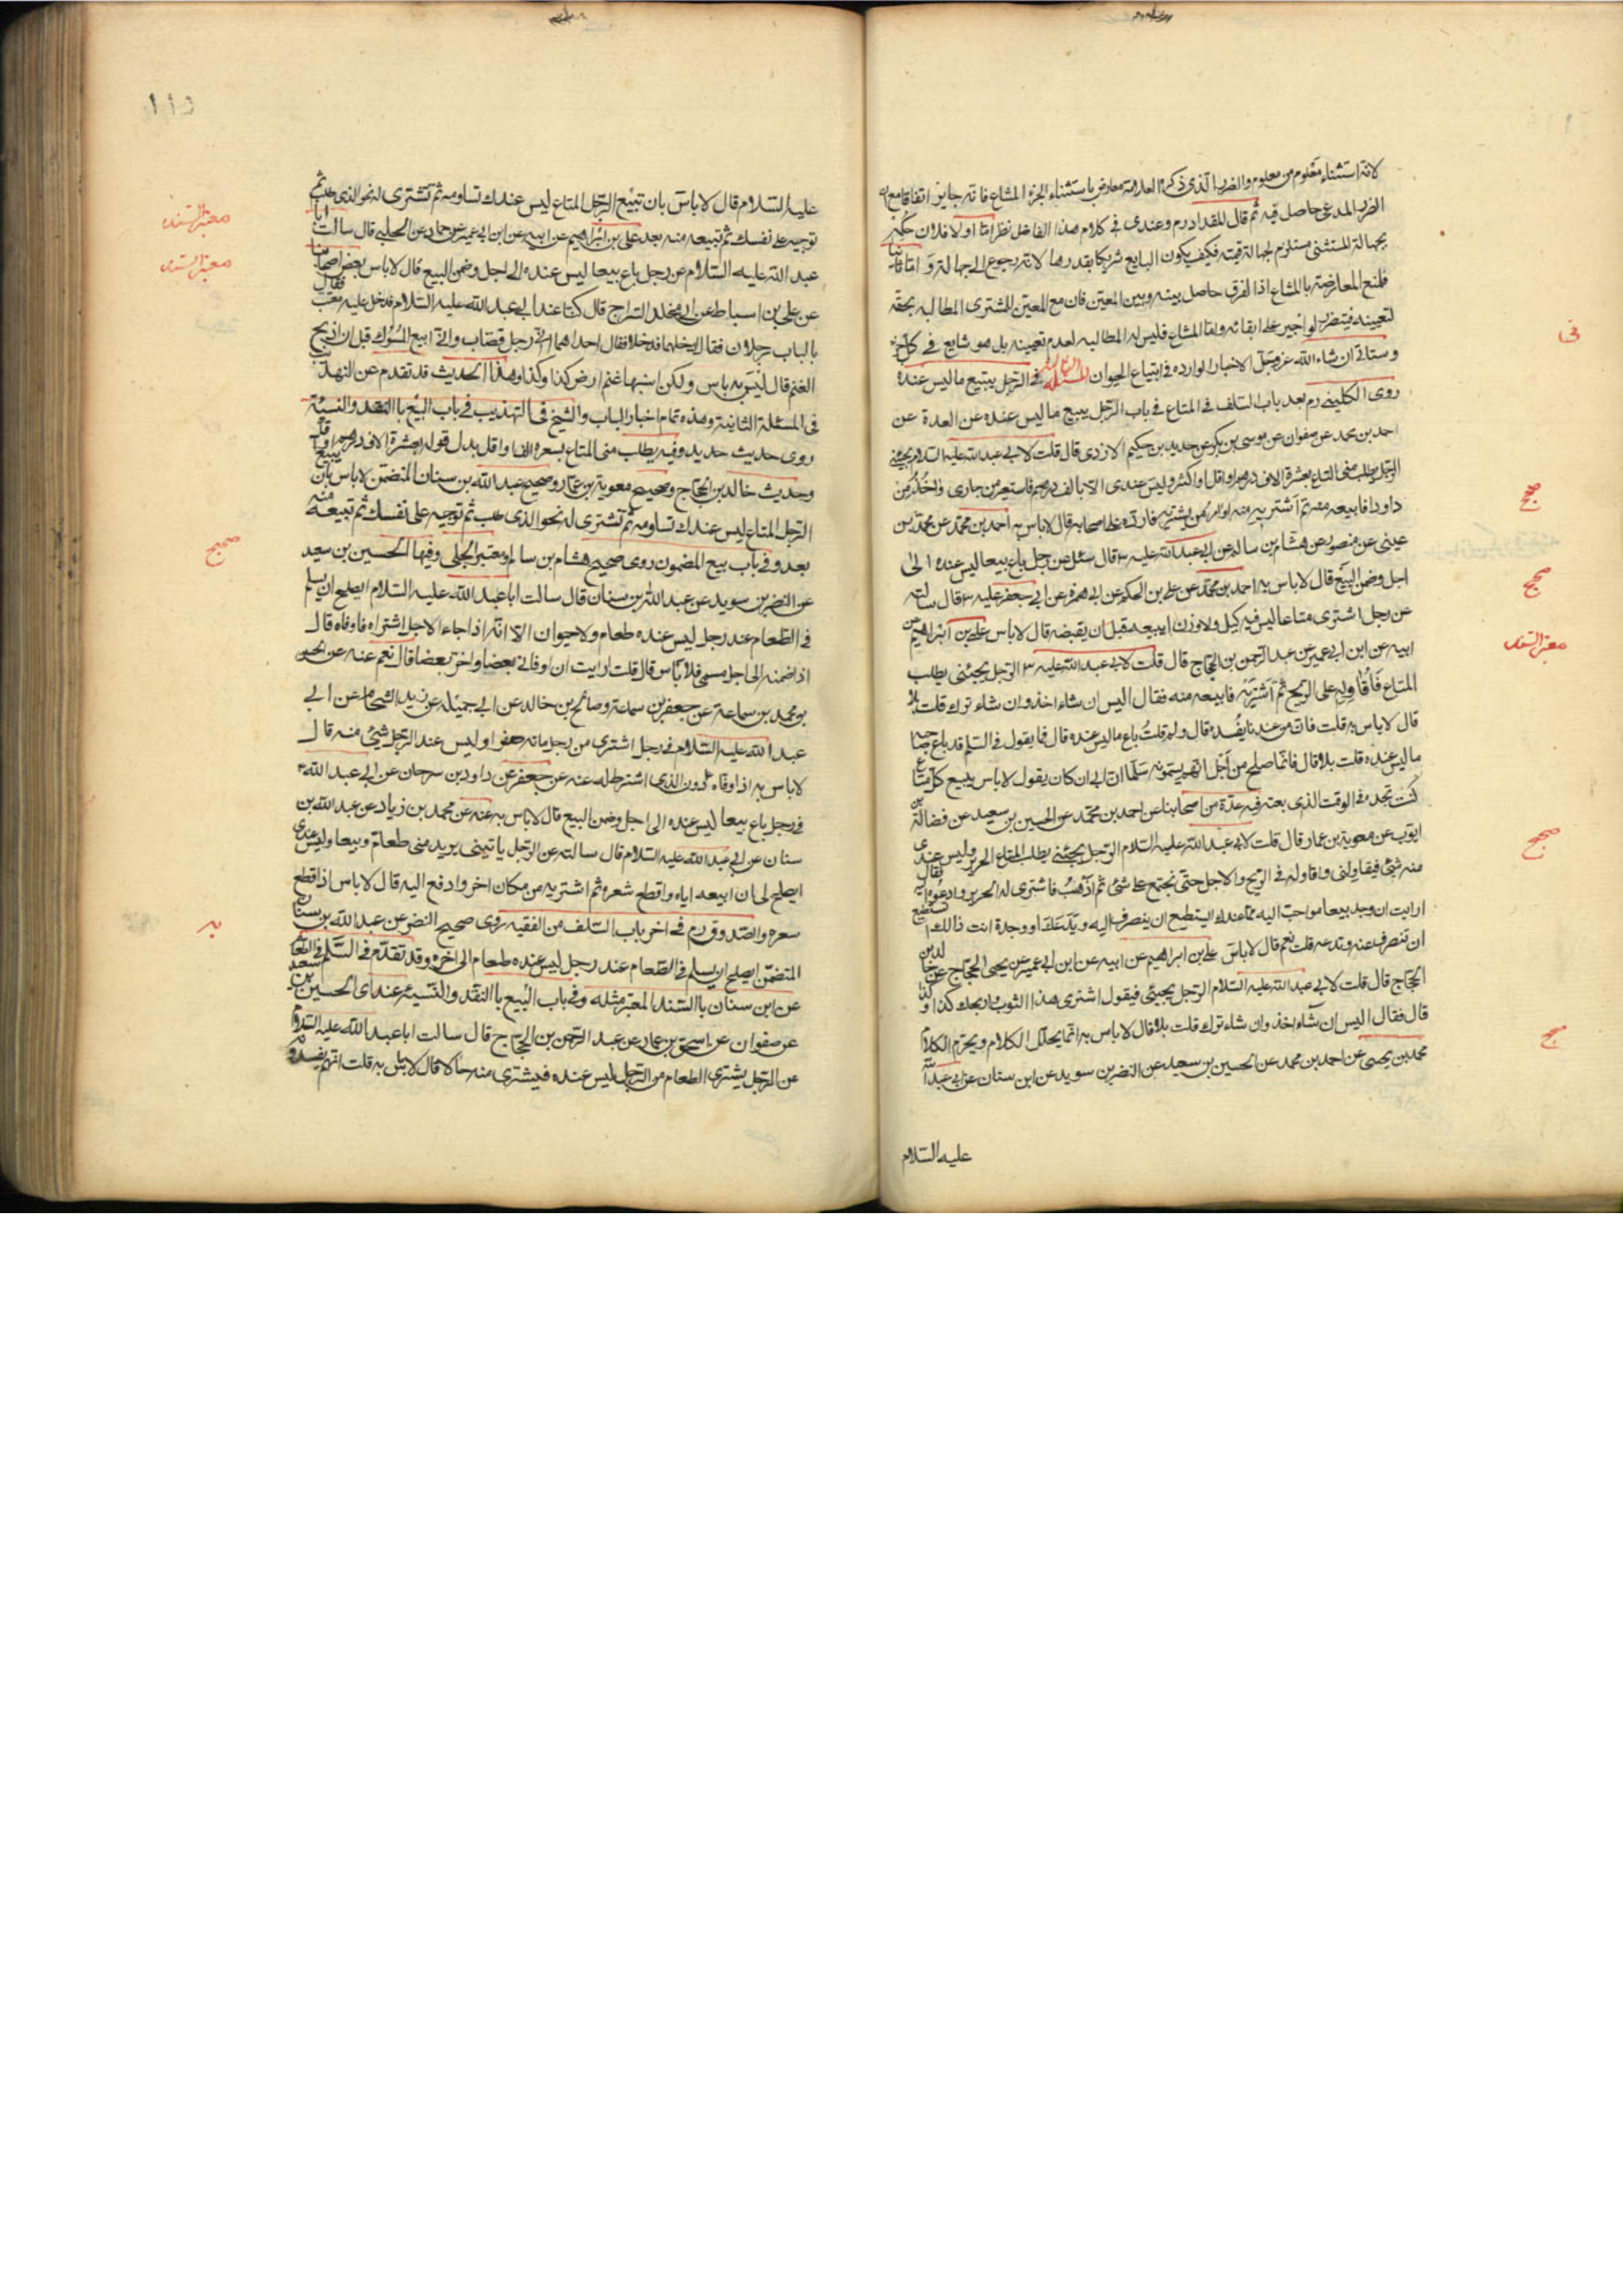 لانه استثناء معلوم من معلوم والضرر الذى ذكره العلامة معارض باستثناء الجزء المشاع فانه جايز اتفاقا مع ان
الضرر المدعى حاصل فيه ثم قال المقداد رم وعندى فى كلام هذا الفاضل نظر اما اولا فلان حكمه
بجهالة المستثنى مستلزم لجهالة قيمته فكيف يكون البايع شريكا بقدرها لانه رجوع الى جهالة و اما ثانيا
فلمنع المعارضة بالمشاع اذا الفرق حاصل بينه وبين المعين فان مع المعين للمشترى المطالبه بحقه
لتعيينه فيتضرر لو اجبر على ابقائه واما المشاع فليس له المطالبه لعدم تعيينه بل هو شايع فى كل جزء
وستاتى ان شاء الله عز وجل الاخبار الوارده فى ابتياع الحيوان المسئلة فى الرجل يبيع ما ليس عنده
روى الكلينى رم بعد باب السلف فى المتاع فى باب الرجل يبيع ما ليس عنده عن العدة عن
احمد بن محمد عن صفوان عن موسى بن بكر عن حديد بن حكيم الازدى قال قلت لابى عبد الله عليه السلام يجيئنى
الرجل يطلب منى المتاع بعشرة الاف درهم او اقل او اكثر وليس عندى الا بالف درهم فاستعير من جارى واخذ من
ذا وذا فابيعه منه ثم اشتريه منه او امر من يشتريه فارده على اصحابه قال لاباس به احمد بن محمد عن محمد بن
عيسى عن منصور عن هشام بن سالم عن ابى عبد الله عليه قال سئل عن رجل باع بيعا ليس عنده الى
اجل وضمن البيع قال لاباس به احمد بن محمد عن على بن الحكم عن ابى حمزة عن ابى جعفر عليه قال سالته
عن رجل اشترى متاعا ليس فيه كيل ولا وزن ايبيعه قبل ان يقبضه قال لاباس على بن ابراهيم عن
ابيه عن ابن ابى عمير عن عبد الرحمن بن الحجاج قال قلت لابى عبد الله عليه الرجل يجيئنى يطلب
المتاع فاقاوله على الربح ثم اشتريه فابيعه منه فقال اليس ان شاء اخذ وان شاء ترك قلت بلا
قال لاباس به قلت فان من عندنا يفسده قال ولم قلت باع ما ليس عنده قال فما يقول فى السلم قد باع صاحبه
ما ليس عنده قلت بلا قال فانما صلح من اجل انهم يسمونه سلما ان ابى كان يقول لاباس ببيع كل متاع
كنت تجده فى الوقت الذى بعته فيه عدة من اصحابنا عن احمد بن محمد عن الحسين بن سعيد عن فضالة بن
ايوب عن معوية بن عمار قال قلت لابى عبد الله عليه السلام الرجل يجيئنى يطلب المتاع الحرير وليس عندى
منه شئ فيقاولنى واقاوله فى الربح والاجل حتى نجتمع على شئ ثم اذهب فاشترى له الحرير وادعوه اليه فقال
ارايت ان وجد بيعا هو احب اليه مما عندك ايستطيع ان ينصرف اليه ويدعك او وجدت انت ذالك تستطيع
ان تنصرف عنه وتدعه قلت نعم قال لاباس على بن ابراهيم عن ابيه عن ابن ابى عمير عن يحيى الحجاج عن خالد بن
الحجاج قال قلت لابى عبد الله عليه السلام الرجل يجيئنى فيقول اشترى هذا الثوب واربحك كذا و كذا
قال فقال اليس ان شاء اخذ وان شاء ترك قلت بلا قال لاباس به انما يحلل الكلام ويحرم الكلام
محمد بن يحيى عن احمد بن محمد عن الحسين بن سعيد عن النضر بن سويد عن ابن سنان عن ابى عبد الله
عليه السلام
صحيح
صحيح
معتبر السند
صحيح
صح
عليه السلام قال لاباس بان تبيع الرجل المتاع ليس عندك تساومه ثم تشترى له نحو الذى طلب ثم
توجبه على نفسك ثم تبيعه منه بعد على بن ابراهيم عن ابيه عن ابن ابى عمير عن حماد عن الحلبى قال سالت ابا
عبد الله عليه السلام عن رجل باع بيعا ليس عنده الى اجل وضمن البيع قال لاباس بعض اصحابنا
عن على بن اسباط عن ابى مخلد السراج قال كنا عند ابى عبد الله عليه السلام فدخل عليه معتب فقال
بالباب رجلان فقال ادخلهما فدخلا فقال احدهما انى رجل قصاب وانى ابيع المسوك قبل ان اذبح
الغنم قال ليس به باس ولكن انسبها غنم ارض كذا وكذا وهذا الحديث قد تقدم عن التهذيب
فى المسئلة الثانية وهذه تمام اخبار الباب والشيخ فى التهذيب فى باب البيع بالنقد والنسية
روى حديث حديد وفيه يطلب منى المتاع بعشرة الفا واقل بدل قوله بعشرة الاف درهم او اقل
وحديث خالد بن الحجاج وصحيح معوية بن عمار وصحيح عبد الله بن سنان المتضمن لاباس بان يبيع
الرجل المتاع ليس عندك تساومه ثم تشترى له نحو الذى طلب ثم توجبه على نفسك ثم تبيعه منه
بعد وفى باب بيع المضمون روى صحيح هشام بن سالم ومعتبر الحلبى وفيها الحسين بن سعيد
عن النضر بن سويد عن عبد الله بن سنان قال سالت ابا عبد الله عليه السلام ايصلح ان يسلم
فى الطعام عند رجل ليس عنده طعام ولا حيوان الا انه اذا جاء الاجل اشتراه فاوفاه قال
اذا ضمنه الى اجل مسمى فلا باس قال قلت ارايت ان اوفانى بعضا واخر بعضا قال نعم عنه عن الحسن
بن محمد بن سماعة عن جعفر بن سماعة وصالح بن خالد عن ابى جميلة عن زيد الشحام عن ابى
عبد الله عليه السلام فى رجل اشترى من رجل مائة صفرا وليس عند الرجل شئ منه قال
لاباس به اذا وفاه دون الذى اشترط له عنه عن جعفر عن داود بن سرحان عن ابى عبد الله
فى رجل باع بيعا ليس عنده الى اجل وضمن البيع قال لاباس به عنه عن محمد بن زياد عن عبد الله بن
سنان عن ابى عبد الله عليه السلام قال سالته عن الرجل ياتينى يريد منى طعاما وبيعا وليس عندى
ايصلح لى ان ابيعه اياه واقطع سعره ثم اشتريه من مكان اخر وادفع اليه قال لاباس اذا قطع
سعره والصدوق رم فى اخر باب السلف من الفقيه روى صحيح النضر عن عبد الله بن سنان
المتضمن ايصلح ان يسلم فى الطعام عند رجل ليس عنده طعام الى اخره وقد تقدم فى السلم فى الطعام
عن ابن سنان بالسند المعتبر مثله وفى باب البيع بالنقد والنسية عندى الحسين بن سعيد
عن صفوان عن اسحق بن عمار عن عبد الرحمن بن الحجاج قال سالت ابا عبد الله عليه السلام
عن الرجل يشترى الطعام من الرجل ليس عنده فيشترى منه حالا قال لاباس به قلت انهم يفسدونه
معتبر السند
معتبر السند
صحيح